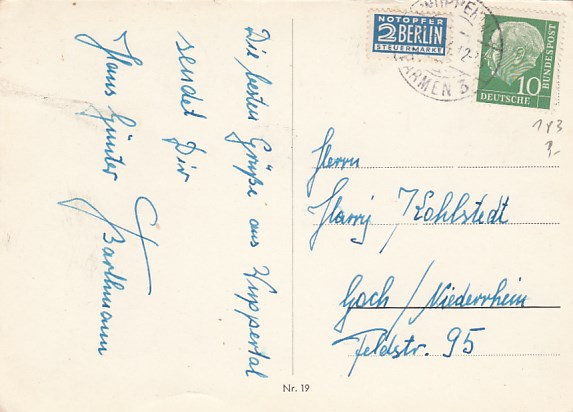 Die besten Grüße aus Wuppertal
sendet Dir
Hans Günter
Barthmann
NOTOPFER
2 BERLIN
STEUERMARKE
WUPPER
ARMEN
10
DEUTSCHE
BUNDESPOST
Herrn
Harry Kohlstedt
Goch/Niederrhein
Feldstr. 95
Nr. 19